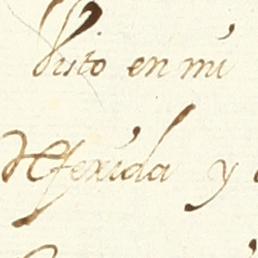 Visto en mi
referida y